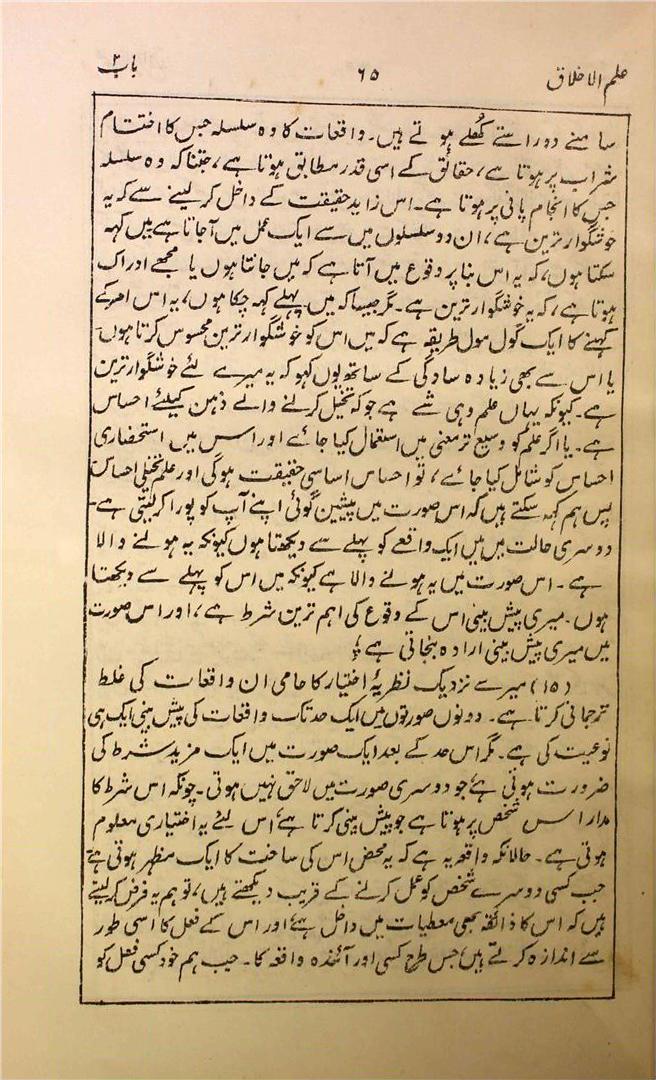 علم الاخلاق ۶۵ باب ۲
سامنے دو راستے کھلے ہوتے ہیں۔ واقعات کا وہ سلسلہ جس کا اختتام
شراب پر ہوتا ہے، حقائق کے اسی قدر مطابق ہوتا ہے، جتنا کہ وہ سلسلہ
جس کا انجام پانی پر ہوتا ہے۔ اس زاید حقیقت کے داخل کر لینے سے کہ یہ
خوشگوار ترین ہے، ان دو سلسلوں میں سے ایک عمل میں آجاتا ہے میں کہہ
سکتا ہوں، کہ یہ اس بنا پر وقوع میں آتا ہے کہ میں جانتا ہوں یا مجھے ادراک
ہوتا ہے، کہ یہ خوشگوار ترین ہے۔ مگر جیسا کہ میں پہلے کہہ چکا ہوں، یہ اس امر کے
کہنے کا ایک گول مول طریقہ ہے کہ میں اس کو خوشگوار ترین محسوس کرتا ہوں۔
یا اس سے بھی زیادہ سادگی کے ساتھ یوں کہو کہ یہ میرے لئے خوشگوار ترین
ہے۔ کیونکہ یہاں علم وہی شے ہے جو کہ تخیل کرنے والے ذہن کیلئے احساس
ہے۔ یا اگر علم کو وسیع تر معنی میں استعمال کیا جائے اور اس میں استحضاری
احساس کو شامل کیا جائے، تو احساس اساسی حقیقت ہوگی اور علم تخیلی احساس
پس ہم کہہ سکتے ہیں کہ اس صورت میں پیشین گوئی اپنے آپ کو پورا کر لیتی ہے۔
دوسری حالت میں میں ایک واقعے کو پہلے سے دیکھتا ہوں کیونکہ یہ ہونے والا
ہے۔ اس صورت میں یہ ہونے والا ہے کیونکہ میں اس کو پہلے سے دیکھتا
ہوں۔ میری پیش بینی اس کے وقوع کی اہم ترین شرط ہے، اور اس صورت
میں میری پیش بینی ارادہ بنجاتی ہے؛
(۱۵) میرے نزدیک نظریۂ اختیار کا حامی ان واقعات کی غلط
ترجمانی کرتا ہے۔ دونوں صورتوں میں ایک حد تک واقعات کی پیش بینی ایک ہی
نوعیت کی ہے۔ مگر اس حد کے بعد ایک صورت میں ایک مزید شرط کی
ضرورت ہوتی ہے جو دوسری صورت میں لاحق نہیں ہوتی۔ چونکہ اس شرط کا
مدار اس شخص پر ہوتا ہے جو پیش بینی کرتا ہے اس لئے یہ اختیاری معلوم
ہوتی ہے۔ حالانکہ واقعہ یہ ہے کہ یہ محض اس کی ساخت کا ایک مظہر ہوتی ہے
جب کسی دوسرے شخص کو عمل کرنے کے قریب دیکھتے ہیں، تو ہم یہ فرض کر لیتے
ہیں کہ اس کا ذائقہ بھی معطیات میں داخل ہے اور اس کے فعل کا اسی طور
سے اندازہ کرتے ہیں جس طرح کسی اور آئندہ واقعہ کا۔ جب ہم خود کسی فعل کو